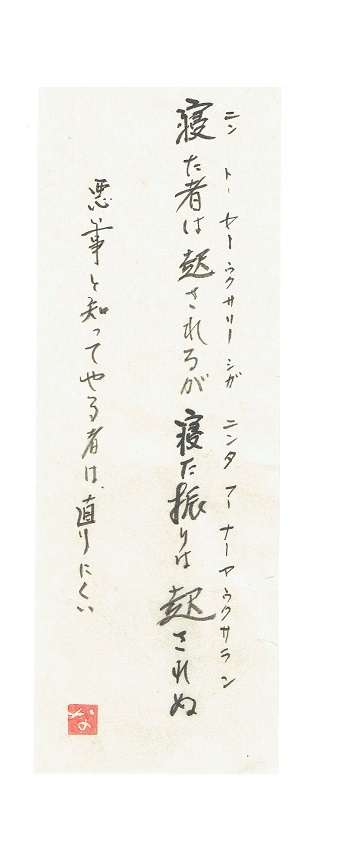 ニントーセーウクサリーシガ ニンタフーナーヤウクサラン
寝た者は起されるが寝た振りは起されぬ
悪い事と知ってやる者は、直りにくい
な